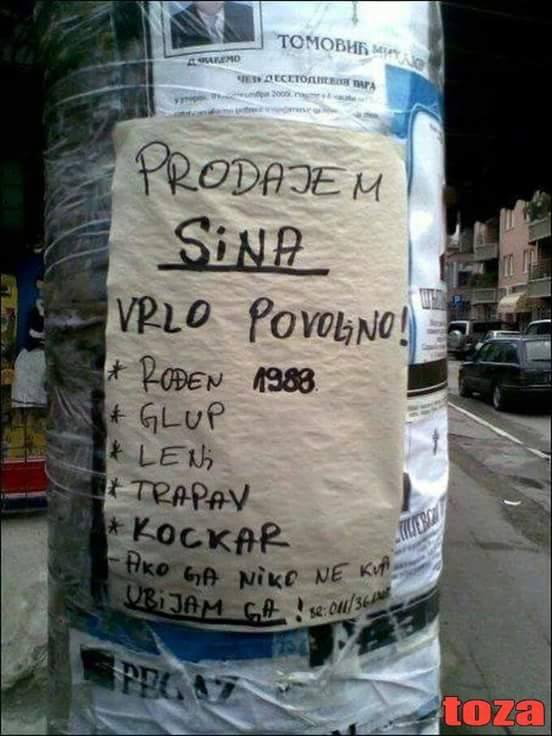 ТОМОВИЋ
ЧЕТРДЕСЕТОДНЕВНИ ПАРА
PRODAJEM
SiNA
VRLO POVOLjNO!
* ROĐEN 1988.
* GLUP
* LENj
* TRAPAV
* KOCKAR
- AKO GA NIKO NE
UBIJAM GA!
PEGAZ
toza